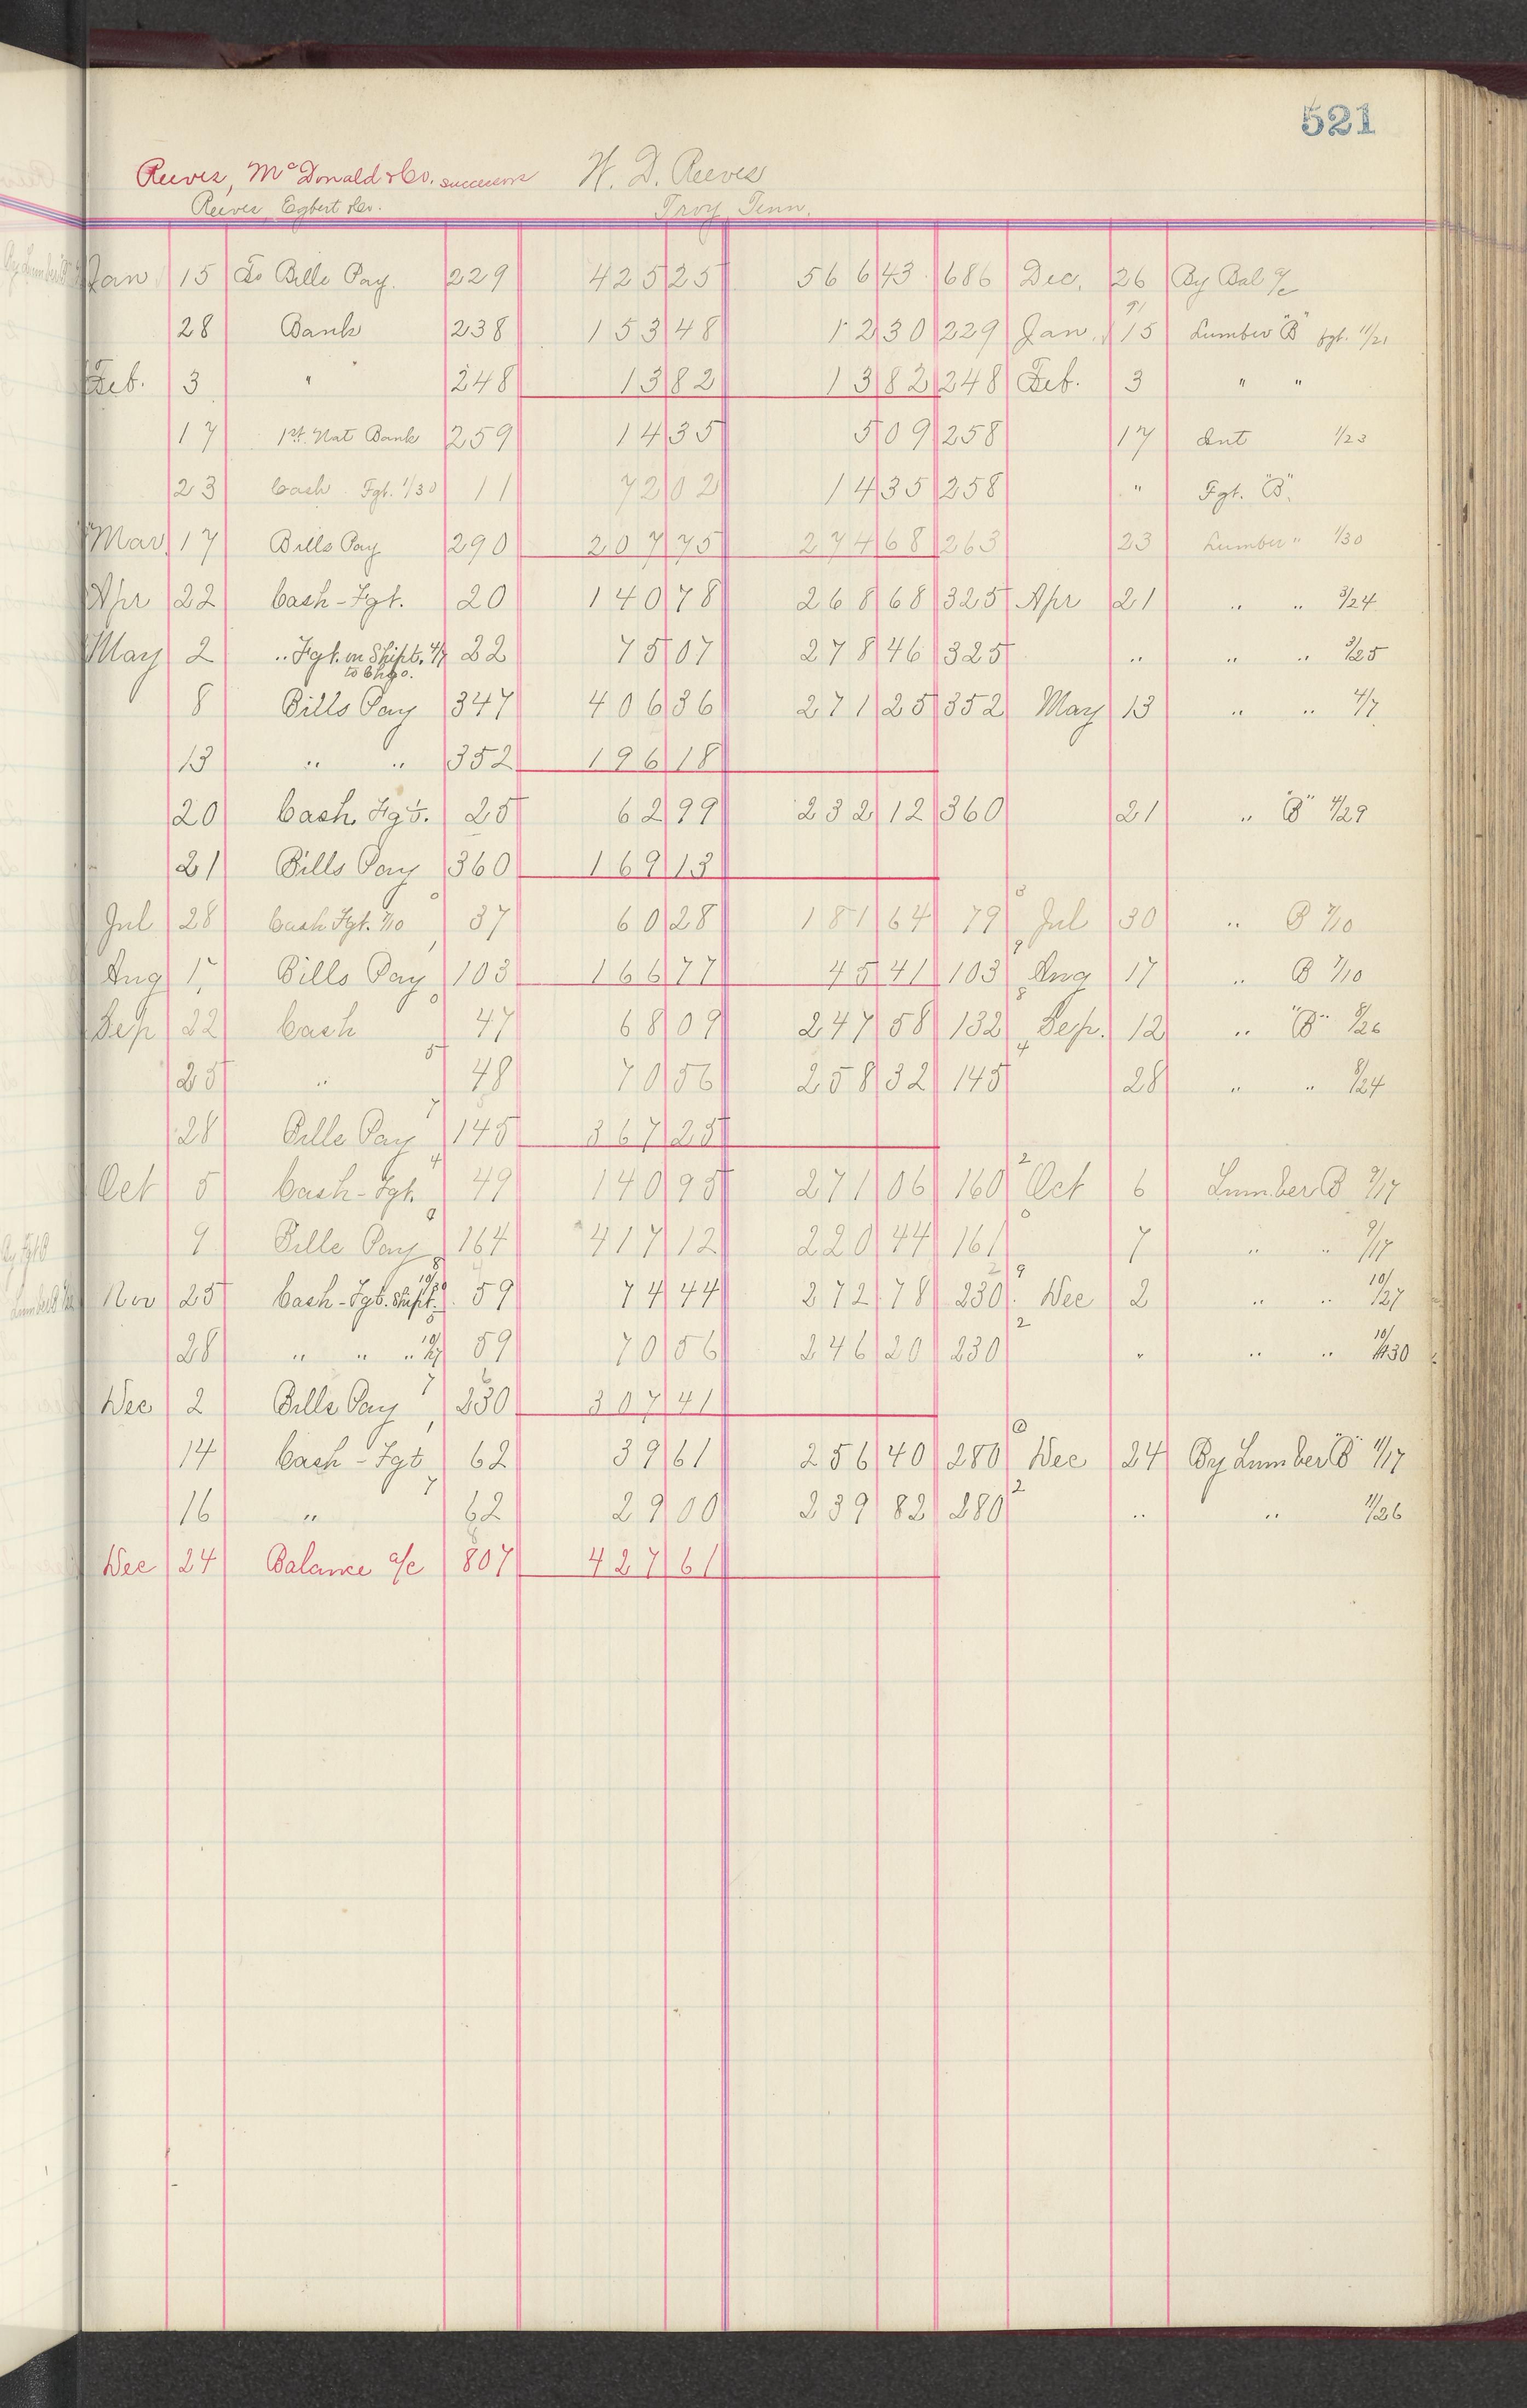 521
Reeves, McDonald & Co. successors H. D. Reeves
Reeves Egbert & Co. Troy, Tenn.
Jan 15 To Bills Pay. 229 425 25 566 43 686 Dec. 26 By Bal a/c
28 Bank 238 153 48 12 30 229 Jan. 15 Lumber "B" fgt. 11/21
Feb. 3 " 248 13 82 13 82 248 Feb. 3 " "
17 1st. Nat Bank 259 14 35 5 09 258 17 Int 1/23
23 Cash Fgt. 1/30 11 72 02 14 35 258 " Fgt. "B".
Mar 17 Bills Pay 290 207 75 274 68 263 23 Lumber " 1/30
Apr 22 Cash - Fgt. 20 140 78 268 68 325 Apr 21 " " 3/24
May 2 " Fgt. on Shipt. 4/7 22 75 07 278 46 325 " " " 3/25
to Chgo.
8 Bills Pay 347 406 36 271 25 352 May 13 " " 4/7
13 " " 352 196 18
20 Cash, Fgt. 25 62 99 232 12 360 21 " "B" 4/29
21 Bills Pay 360 169 13
Jul 28 Cash Fgt. 7/10 37 60 28 181 64 79 Jul 30 " B 7/10
Aug 17 Bills Pay 103 166 77 45 41 103 Aug 17 " B 7/10
Sep 22 Cash 47 68 09 247 58 132 Sep. 12 " "B" 8/26
25 " 48 70 56 258 32 145 28 " " 8/24
28 Bills Pay 145 367 25
Oct 5 Cash - Fgt. 49 140 95 271 06 160 Oct 6 Lumber B 9/17
9 Bills Pay 164 417 12 220 44 161 7 " " 9/17
Nov 25 Cash - Fgt. Shipt. 10/30 59 74 44 272 78 230 Dec 2 " " 10/27
28 " " " 10/27 59 70 56 246 20 230 " " " 10/30
Dec 2 Bills Pay 230 307 41
14 Cash - Fgt 62 39 61 256 40 280 Dec 24 By Lumber "B" 11/17
16 " 62 29 00 239 82 280 " " 11/26
Dec 24 Balance a/c 807 427 61